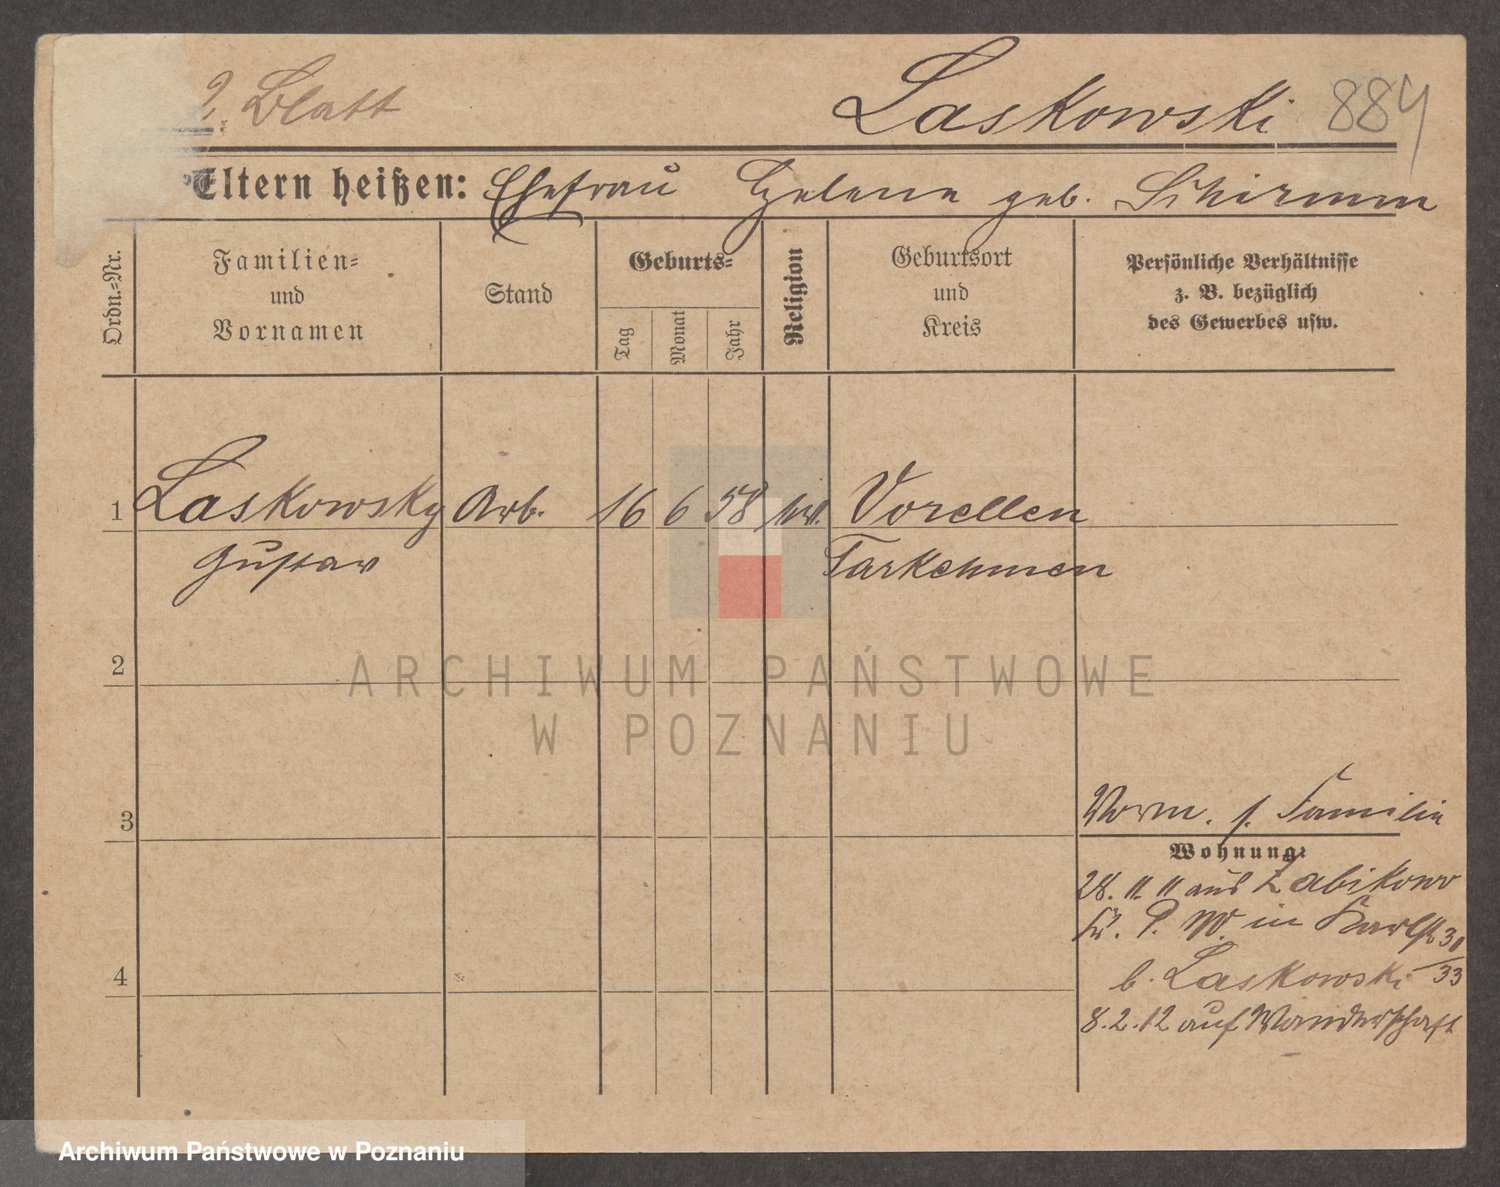 2. Blatt
Laskowski 884
Eltern heißen: Ehefrau Helene geb. Schirmm
Ordn.=Nr.
Familien=
und
Vornamen
Stand
Geburts=
Tag
Monat
Jahr
Religion
Geburtsort
und
Kreis
Persönliche Verhältnisse
z. B. bezüglich
des Gewerbes usw.
1 Laskowsky Arb. 16 6 58 Vorellen
Gustav Darkehmen
2
ARCHIWUM PAŃSTWOWE
W POZNANIU
3
Vorm. s. Familie
Wohnung:
28. 11. 11 aus Zabikowo
Kr. P. W. in Karlstr 30/33
4
b. Laskowski
8.2.12 auf Wanderschaft
Archiwum Państwowe w Poznaniu